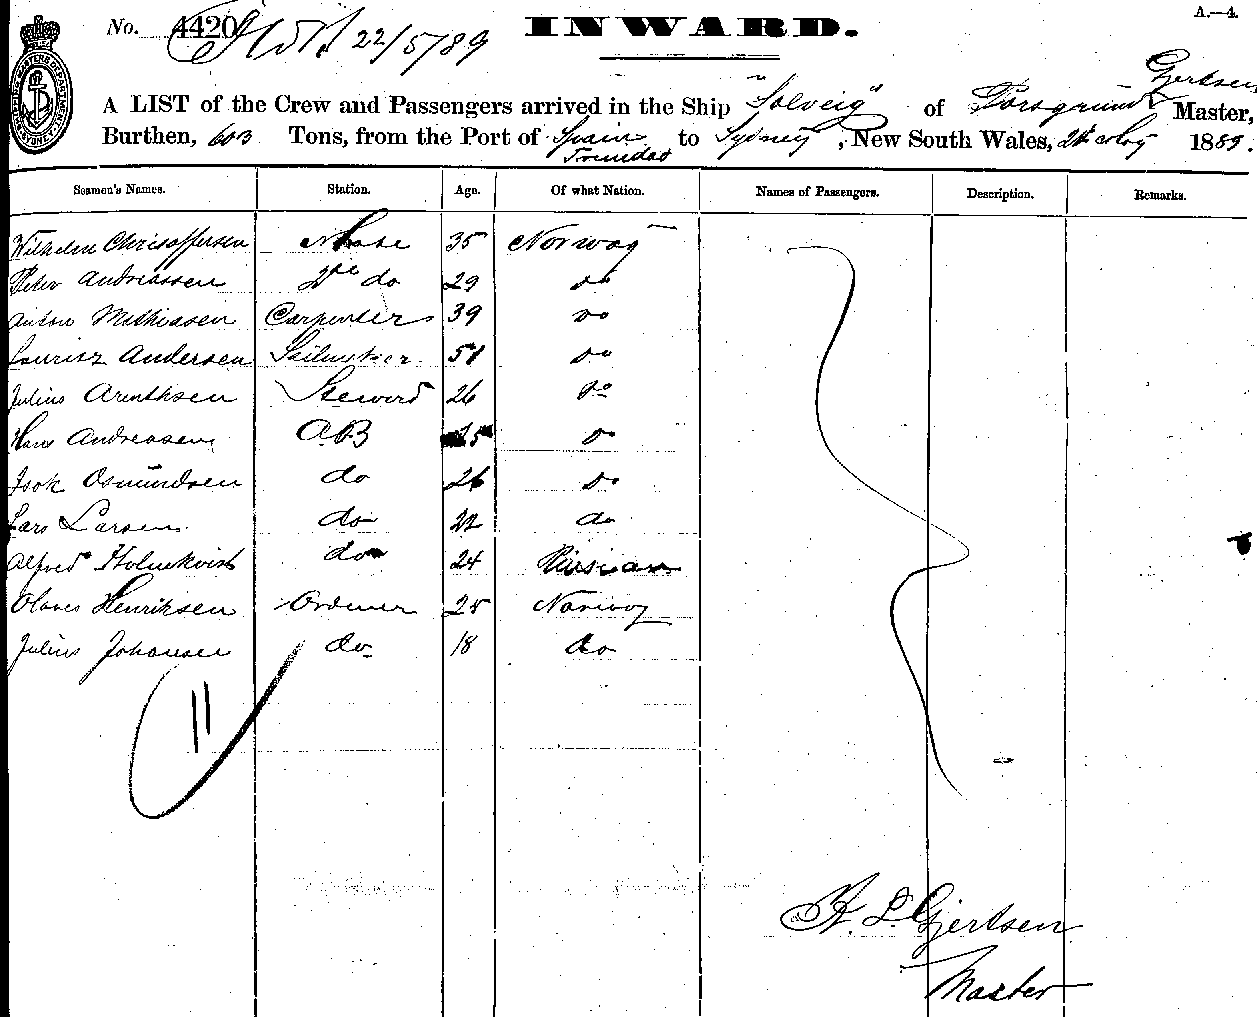 A.—4.
No. 4420 22/5/89 INWARD.
Gjertsen
A LIST of the Crew and Passengers arrived in the Ship "Solveig" of Porsgrund Master,
Burthen, 603 Tons, from the Port of Spain Trinidad to Sydney, New South Wales, May 1889.
Seamen's Names. Station. Age. Of what Nation. Names of Passengers. Description. Remarks.
Wilhelm Christoffersen Mate 35 Norway
Peter Andreassen 2de do 29 do
Anton Mathiasen Carpenter 39 do
Lauritz Andersen Sailmaker 51 do
Julius Arnthsen Steward 26 do
Hans Andreasen AB do
Isak Osmundsen do 26 do
Lars Larsen do 22 do
Alfred Holmkvist do 24 Russian
Olaves Henriksen Ordiner 25 Norway
Julius Johansen do 18 do
11
H. L. Gjertsen
Master